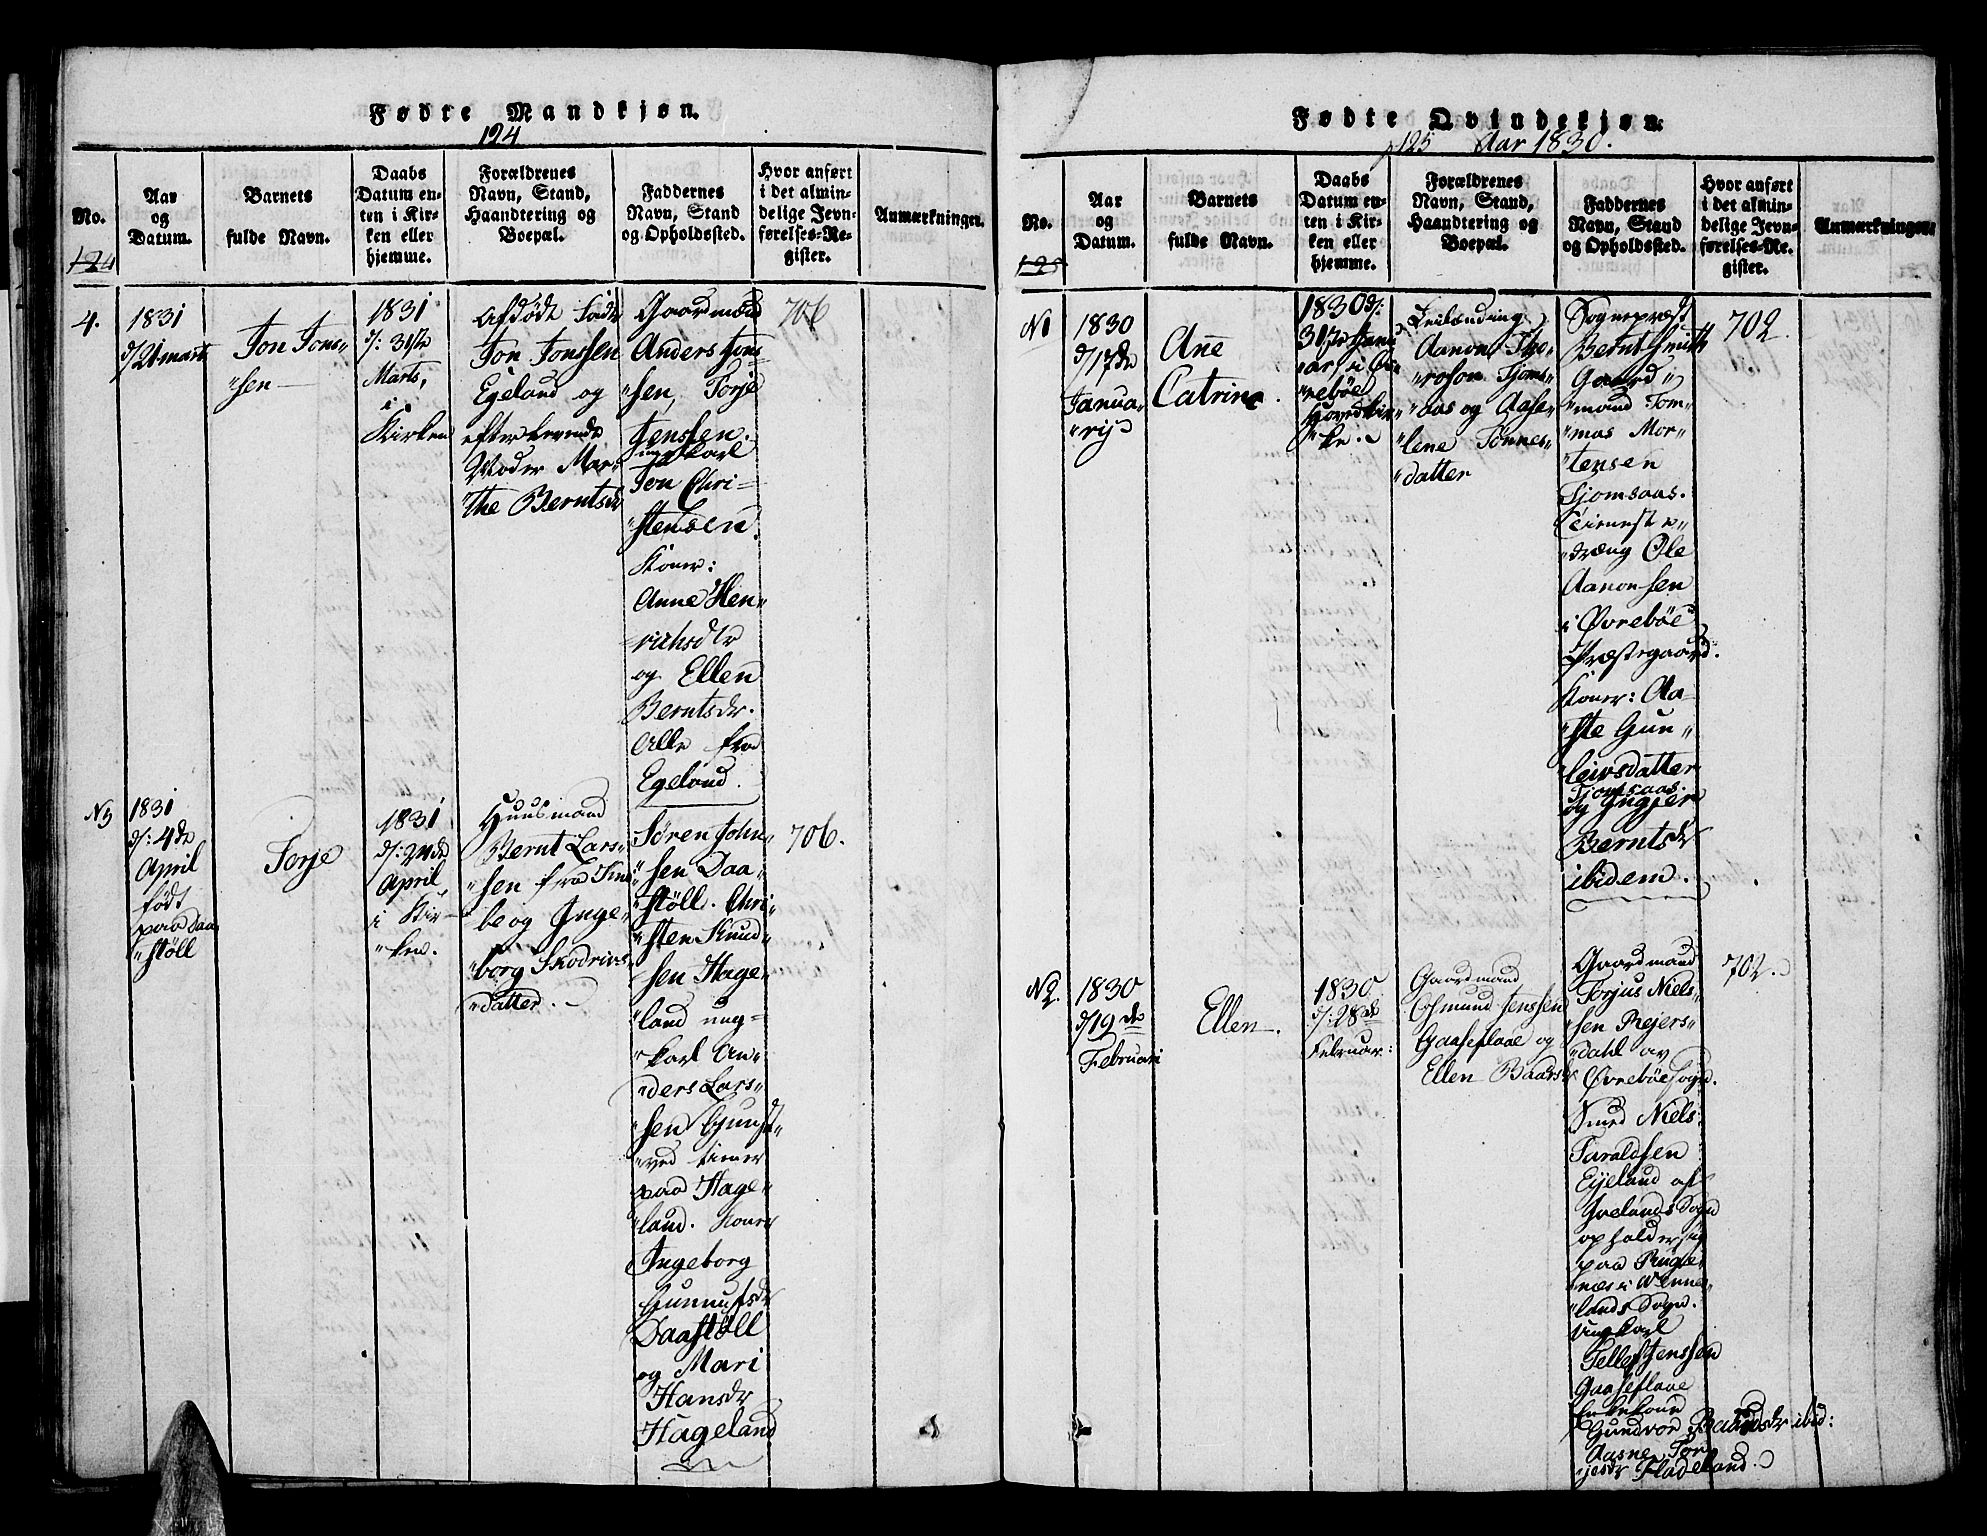 Fødte Mandkjøn.
124
No.
124
Aar
og
Datum.
Barnets
fulde Navn.
Daabs
Datum en-
ten i Kir-
ken eller
hjemme.
Forældrenes
Navn, Stand,
Haandtering og
Boepæl.
Faddernes
Navn, Stand
og Opholdssted.
Hvor anført
i det almin-
delige Jevn-
førelses-Re-
gister.
Anmærkninger.
4.
1831
d/21 marts
Jon Jons"
"sen
1831
d/: 31te
Marts,
i
Kirken
Afdødt
Jon Jonssen
Egeland og
efterlevende
Moder Mar"
"the Berntsdr
Gaardmænd
Anders Jons"
"sen, Torje
Jenssen.
ungkarl
Jon Chri-
"stensen.
Koner:
Anne Hen"
"richsdtr
og Ellen
Berntsdr.
Alle fra
Egeland.
706
N5
1831
d/: 4de
April
født
paa Daa"
"støll
Torje
1831
d/: 24de
April,
i Kir-
"ken.
Huusmand
Bernt Lars"
"sen fra
be og Inge"
"borg Skodrivs"
"datter.
Søren John"
"sen Daa"
"støll. Chri"
"sten Knud"
"sen Hage"
"land ung-
"karl An"
"ders Lars"
"sen Gunst"
"ved tiener
paa Hage"
"land. Koner
Ingeborg
Gunnufsdr
Daastøll
og Mari
Hansdr
Hageland
706.
Fødte Qvindekjøn.
125 Aar 1830.
No.
125
Aar
og
Datum.
Barnets
fulde Navn.
Daabs
Datum en-
ten i Kir-
ken eller
hjemme.
Forældrenes
Navn, Stand,
Haandtering og
Boepæl.
Faddernes
Navn, Stand
og Opholdssted.
Hvor anført
i det almin-
delige Jevn-
førelses-Re-
gister.
Anmærkninger.
N1
1830
d/17de
Janua"
"rj
Ane
Catrine.
1830 d/:
31te Janu
"ar i Øv"
"rebøe
Hovedkir"
"ke.
Leilænding
Aanon The"
"roson Tjoms"
"aas og Aase"
"lene Tønnes"
datter
Sognepræst
Bernt Smith
Gaard"
"mand Tom"
"mas Mor"
"tensen
Tjomsaas.
Tieneste"
"dræng Ole
Aanonsen
i Øvrebøe
Præstegaard.
Koner: Aa-
"ste Gun"
"leivsdatter
Tjomsaas.
og Ingjer
Berntsdr
ibidem.
702
N2.
1830
d/19de
Februari
Ellen.
1830
d/: 28de
Februar:
Gaardmand
Osmund Jenssen
Gaaseflaae og
Ellen Baarsdr
Gaardmand
Torjus Niels"
"sen Reiers"
"dahl av
Øvrebøe sogn.
Smed Niels
Taraldsen
Eijeland af
Ivelands Sogn
opholder sig
paa Rugte"
"næs i Wenne"
"lands Sogn.
Ungkarl
Tellef Jenssen
Gaaseflaae
Enkekone
Gundvor Baardsdr ibid:
Aasne Tor"
"jesdr Fladeland.
702.